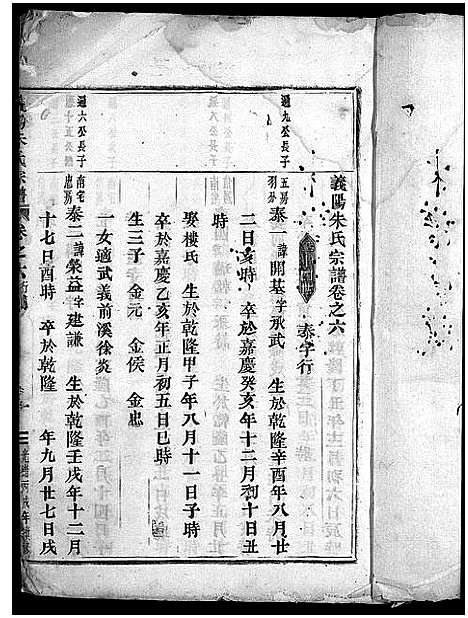 義陽朱氏宗譜卷之六
泰字行
迵九公長子
五房
羽分
泰一 諱開基字承武 生於乾隆辛酉年八月廿
二日亥時 卒於嘉慶癸亥年十二月初十日丑
時
娶樓氏 生於乾隆甲子年八月十一日子時
卒於嘉慶乙亥年正月初五日巳時
生三子 金元 金侯 金忠
一女適武義前溪徐炎
迵六公長子
南宅
忠房
泰二 諱榮益字建謙 生於乾隆壬戌年十二月
十七日酉時 卒於乾隆 年九月廿七日戌